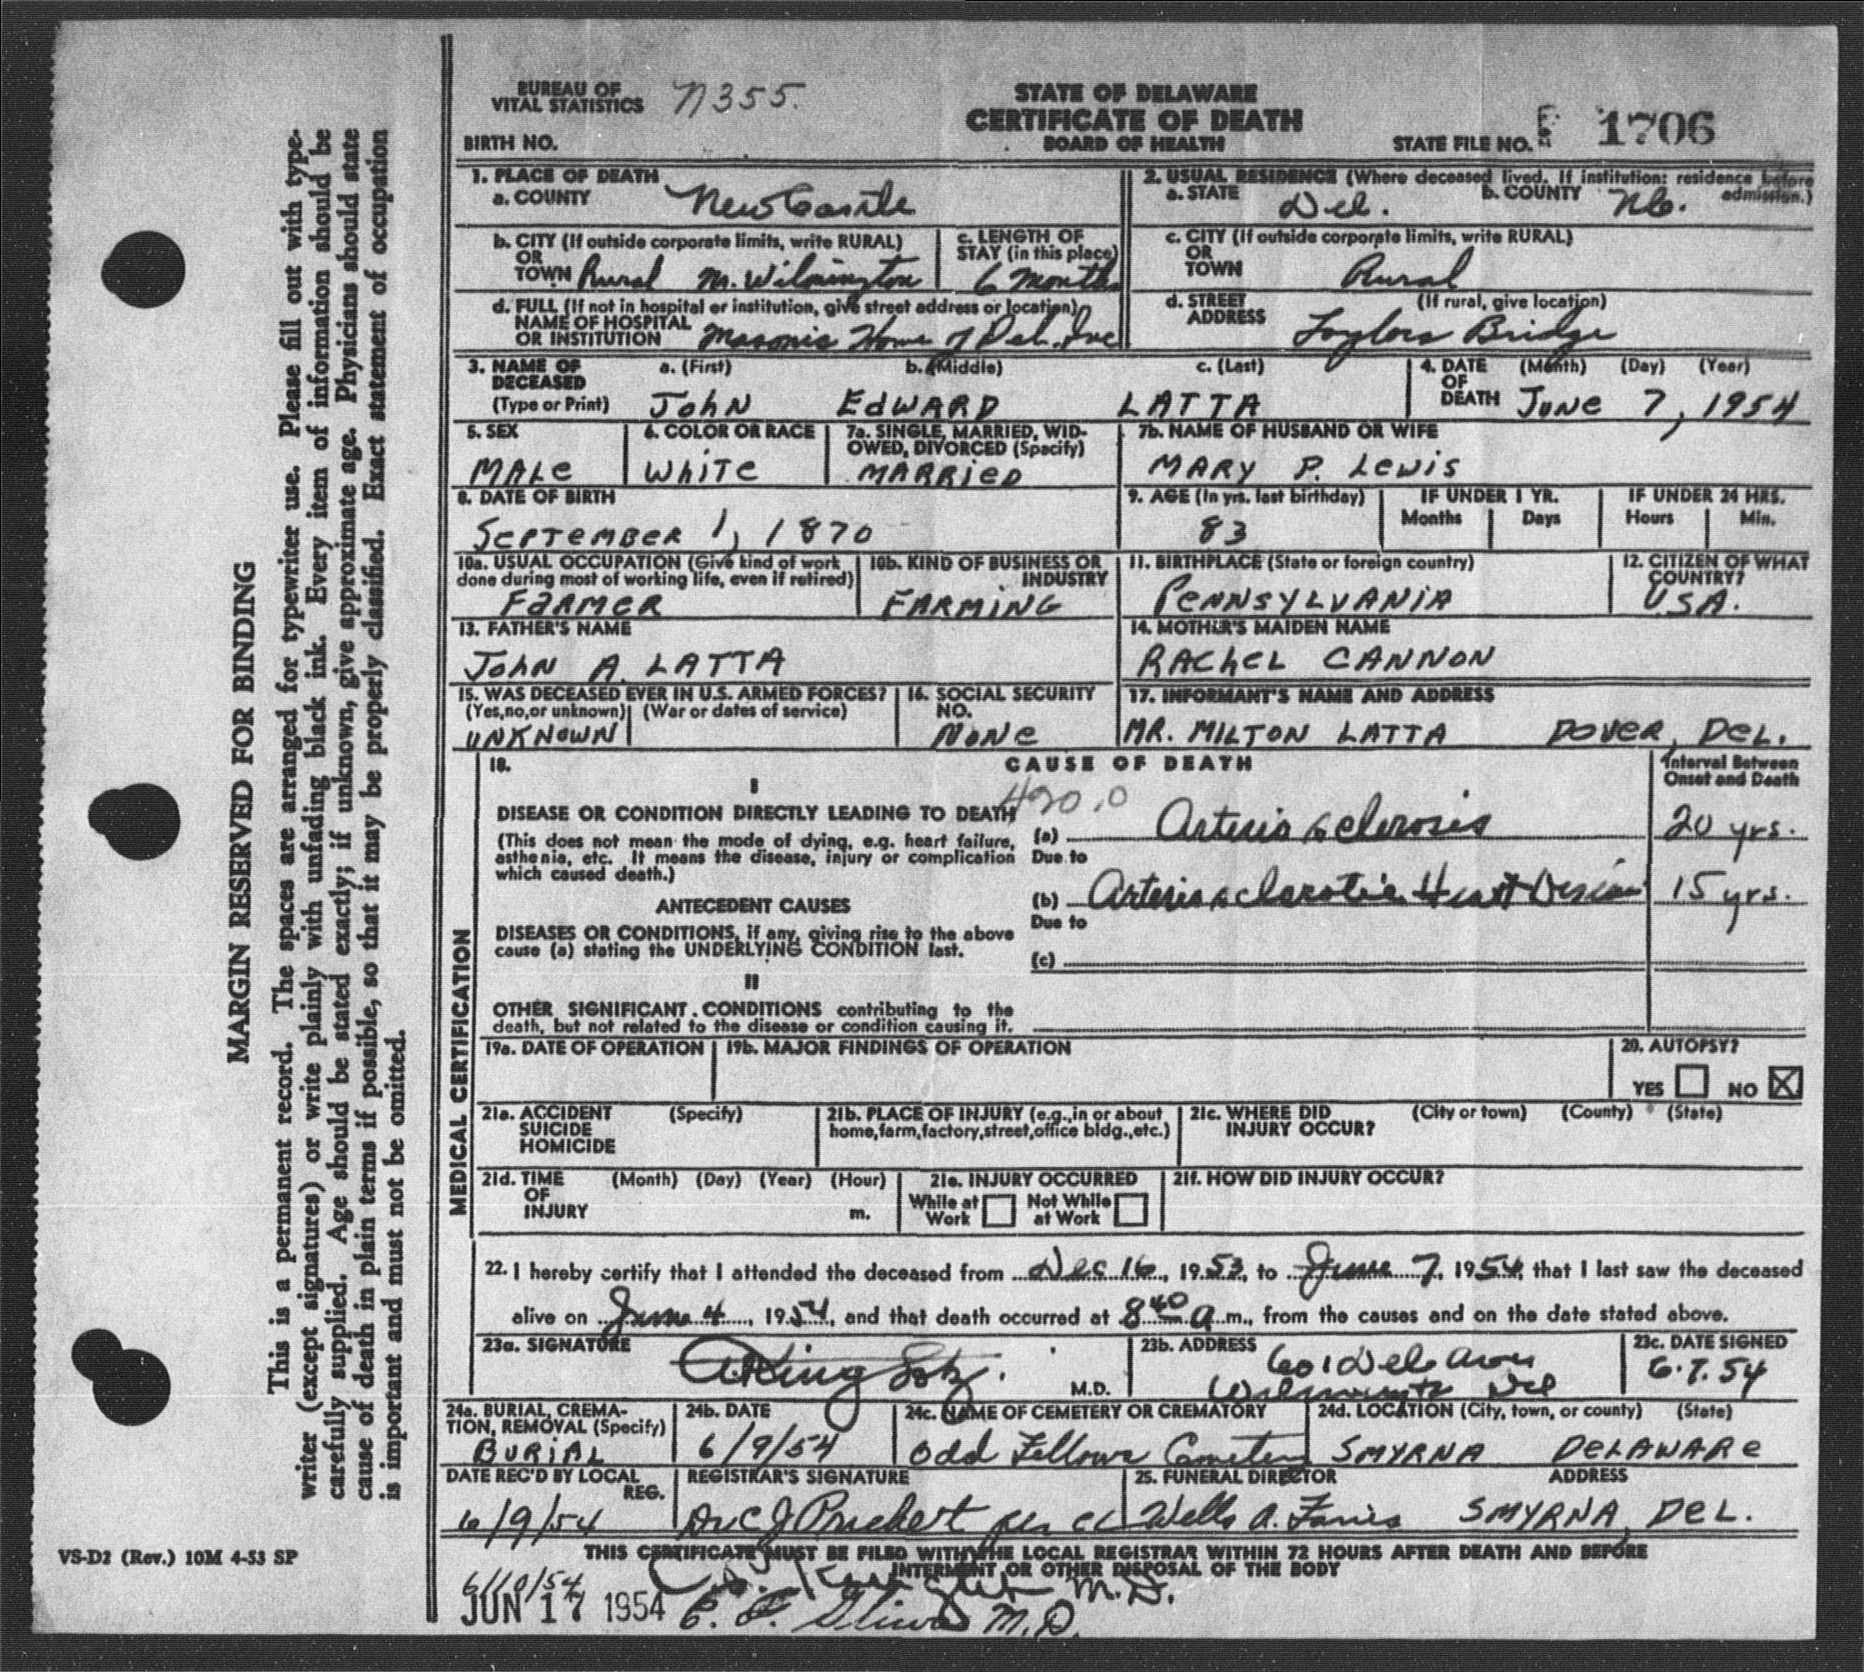 BUREAU OF
VITAL STATISTICS
N355.
STATE OF DELAWARE
CERTIFICATE OF DEATH
BOARD OF HEALTH
BIRTH NO.
STATE FILE NO. 1706
1. PLACE OF DEATH
a. COUNTY New Castle
2. USUAL RESIDENCE (Where deceased lived. If institution: residence before admission.)
a. STATE Del. b. COUNTY N.C.
b. CITY (If outside corporate limits, write RURAL)
OR
TOWN Rural Nr. Wilmington
c. LENGTH OF
STAY (in this place)
6 Months
c. CITY (If outside corporate limits, write RURAL)
OR
TOWN Rural
d. FULL (If not in hospital or institution, give street address or location)
NAME OF HOSPITAL
OR INSTITUTION Masonic Home of Del. Inc
d. STREET (If rural, give location)
ADDRESS Taylors Bridge
3. NAME OF
DECEASED
(Type or Print)
a. (First) b. (Middle) c. (Last)
JOHN EDWARD LATTA
4. DATE (Month) (Day) (Year)
OF
DEATH JUNE 7, 1954
5. SEX
MALE
6. COLOR OR RACE
WHITE
7a. SINGLE, MARRIED, WID-
OWED, DIVORCED (Specify)
MARRIED
7b. NAME OF HUSBAND OR WIFE
MARY P. LEWIS
8. DATE OF BIRTH
SEPTEMBER 1, 1870
9. AGE (In yrs. last birthday)
83
IF UNDER 1 YR.
Months Days
IF UNDER 24 HRS.
Hours Min.
10a. USUAL OCCUPATION (Give kind of work
done during most of working life, even if retired)
FARMER
10b. KIND OF BUSINESS OR
INDUSTRY
FARMING
11. BIRTHPLACE (State or foreign country)
PENNSYLVANIA
12. CITIZEN OF WHAT
COUNTRY?
U.S.A.
13. FATHER'S NAME
JOHN A. LATTA
14. MOTHER'S MAIDEN NAME
RACHEL CANNON
15. WAS DECEASED EVER IN U.S. ARMED FORCES?
(Yes, no, or unknown) (War or dates of service)
UNKNOWN
16. SOCIAL SECURITY
NO.
NONE
17. INFORMANT'S NAME AND ADDRESS
MR. MILTON LATTA DOVER, DEL.
MEDICAL CERTIFICATION
18. CAUSE OF DEATH
Interval Between
Onset and Death
I
DISEASE OR CONDITION DIRECTLY LEADING TO DEATH
420.0
(This does not mean the mode of dying, e.g. heart failure,
asthenia, etc. It means the disease, injury or complication
which caused death.)
(a) Arterio sclerosis 20 yrs.
Due to
ANTECEDENT CAUSES
(b) Arterio sclerotic Heart Disease 15 yrs.
Due to
DISEASES OR CONDITIONS, if any, giving rise to the above
cause (a) stating the UNDERLYING CONDITION last.
(c)
II
OTHER SIGNIFICANT CONDITIONS contributing to the
death, but not related to the disease or condition causing it.
19a. DATE OF OPERATION
19b. MAJOR FINDINGS OF OPERATION
20. AUTOPSY?
YES NO X
21a. ACCIDENT (Specify)
SUICIDE
HOMICIDE
21b. PLACE OF INJURY (e.g., in or about
home, farm, factory, street, office bldg., etc.)
21c. WHERE DID (City or town) (County) (State)
INJURY OCCUR?
21d. TIME (Month) (Day) (Year) (Hour)
OF
INJURY m.
21e. INJURY OCCURRED
While at
Work
Not While
at Work
21f. HOW DID INJURY OCCUR?
22. I hereby certify that I attended the deceased from Dec 16, 1953, to June 7, 1954, that I last saw the deceased
alive on June 4, 1954, and that death occurred at 8 40 a m., from the causes and on the date stated above.
23a. SIGNATURE
M.D.
23b. ADDRESS
601 Del Ave
Wilmington Del
23c. DATE SIGNED
6.7.54
24a. BURIAL, CREMA-
TION, REMOVAL (Specify)
BURIAL
24b. DATE
6/9/54
24c. NAME OF CEMETERY OR CREMATORY
Odd Fellows Cemetery
24d. LOCATION (City, town, or county) (State)
SMYRNA DELAWARE
DATE REC'D BY LOCAL
REG.
6/9/54
REGISTRAR'S SIGNATURE
Dr C J Prickett per CC
25. FUNERAL DIRECTOR ADDRESS
Wells A. Faries SMYRNA, DEL.
THIS CERTIFICATE MUST BE FILED WITH THE LOCAL REGISTRAR WITHIN 72 HOURS AFTER DEATH AND BEFORE
INTERMENT OR OTHER DISPOSAL OF THE BODY
6/10/54
M.D.
JUN 17 1954
M.D.
VS-D2 (Rev.) 10M 4-53 SP
MARGIN RESERVED FOR BINDING
This is a permanent record. The spaces are arranged for typewriter use. Please fill out with type-
writer (except signatures) or write plainly with unfading black ink. Every item of information should be
carefully supplied. Age should be stated exactly; if unknown, give approximate age. Physicians should state
cause of death in plain terms if possible, so that it may be properly classified. Exact statement of occupation
is important and must not be omitted.